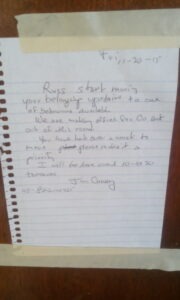 Fri 11-20-15
Russ start moving
your belongings upstairs to one
of bedrooms available.
We are making office for Co. out
out of this room
You have had over a week to
move please make it a
priority.
I will be here around 10-10:30
tomorrow
Jim